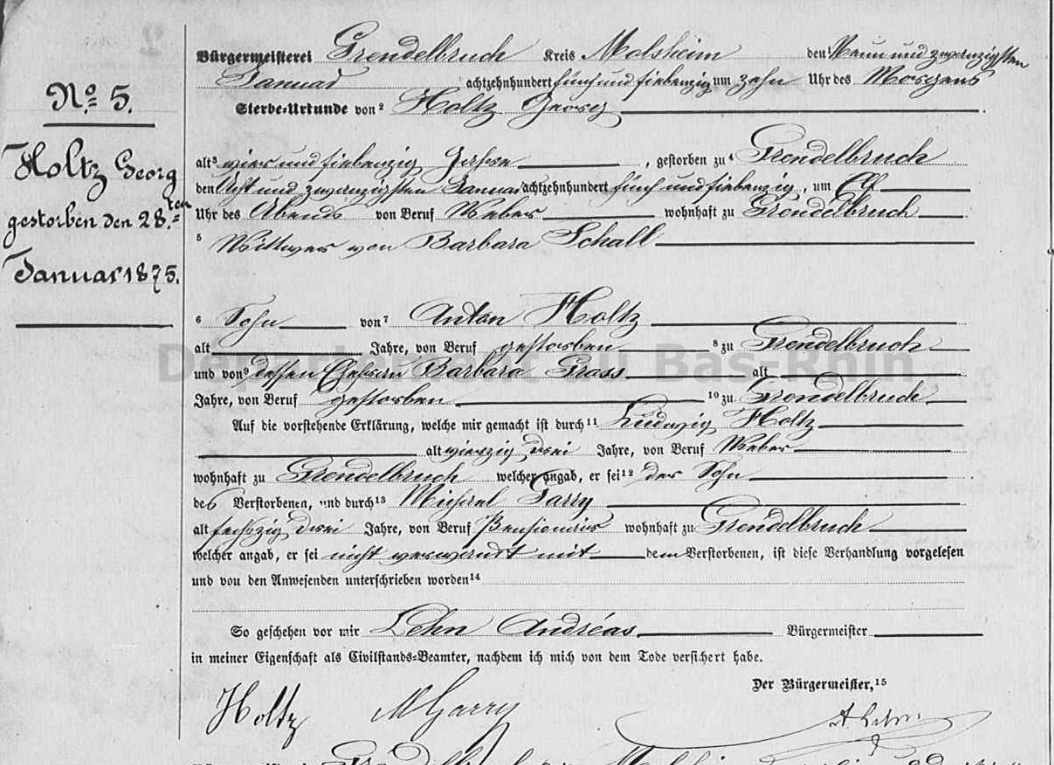 Nº 5.
Holtz Georg
gestorben den 28.ten
Januar 1875.
Bürgermeisterei Grendelbruch Kreis Molsheim den Neun und zwanzigsten
Januar achtzehnhundert fünf und siebenzig um zehn Uhr des Morgens
Sterbe-Urkunde von 2 Holtz Georg
alt 3 vier und siebenzig Jahre, gestorben zu 4 Grendelbruch
den Acht und zwanzigsten Januar achtzehnhundert fünf und siebenzig, um Elf
Uhr des Abends von Beruf Weber wohnhaft zu Grendelbruch
5 Wittwer von Barbara Schall
6 Sohn von 7 Anton Holtz
alt Jahre, von Beruf gestorben 8 zu Grendelbruch
und von 9 dessen Ehefrau Barbara Grass alt
Jahre, von Beruf gestorben 10 zu Grendelbruch
Auf die vorstehende Erklärung, welche mir gemacht ist durch 11 Ludwig Holtz
alt vierzig drei Jahre, von Beruf Weber
wohnhaft zu Grendelbruch welcher angab, er sei 12 der Sohn
des Verstorbenen, und durch 13 Michael Garry
alt sechszig drei Jahre, von Beruf Pensionär wohnhaft zu Grendelbruch
welcher angab, er sei nicht verwandt mit dem Verstorbenen, ist diese Verhandlung vorgelesen
und von den Anwesenden unterschrieben worden 14
So geschehen vor mir Lehn Andréas Bürgermeister
in meiner Eigenschaft als Civilstands-Beamter, nachdem ich mich von dem Tode versichert habe.
Der Bürgermeister, 15
Holtz M Garry A. Lehn
Département du Bas-Rhin